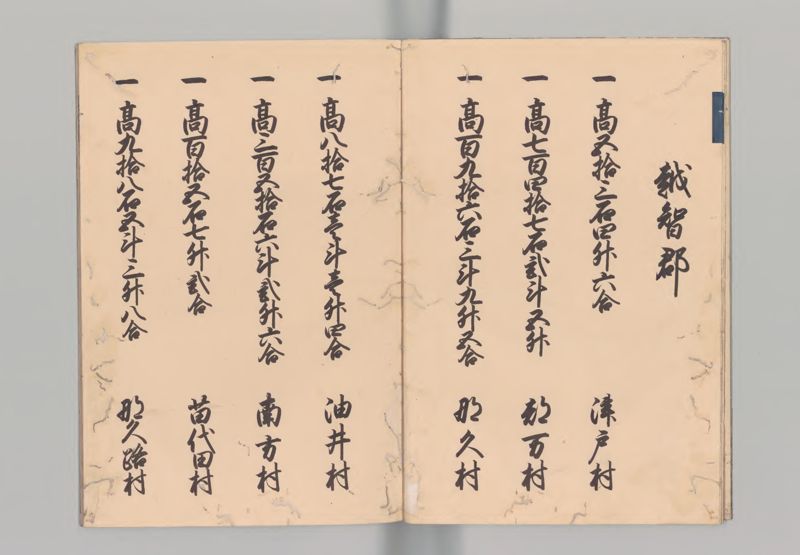 越智郡
一 高五拾三石四升六合 津戸村
一 高七百四拾七石弐斗五升 都万村
一 高百九拾六石三斗九升五合 那久村
一 高八拾七石壱斗壱升四合 油井村
一 高三百五拾石六斗弐升六合 南方村
一 高百拾五石七升弐合 苗代田村
一 高九拾八石五斗三升八合 那久路村